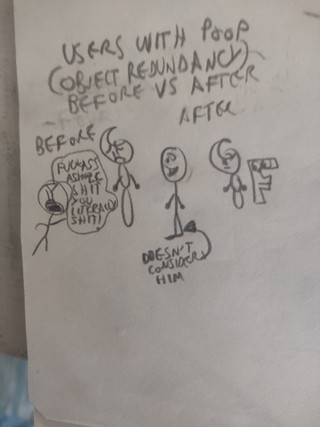 USERS WITH POOP
(OBJECT REDUNDANCY)
BEFORE VS AFTER
AFTER
BEFORE
FUCKASS
ASHOLE
SHIT
YOU
LITERALLY
SHIT!
DOESN'T
CONSIDER
HIM